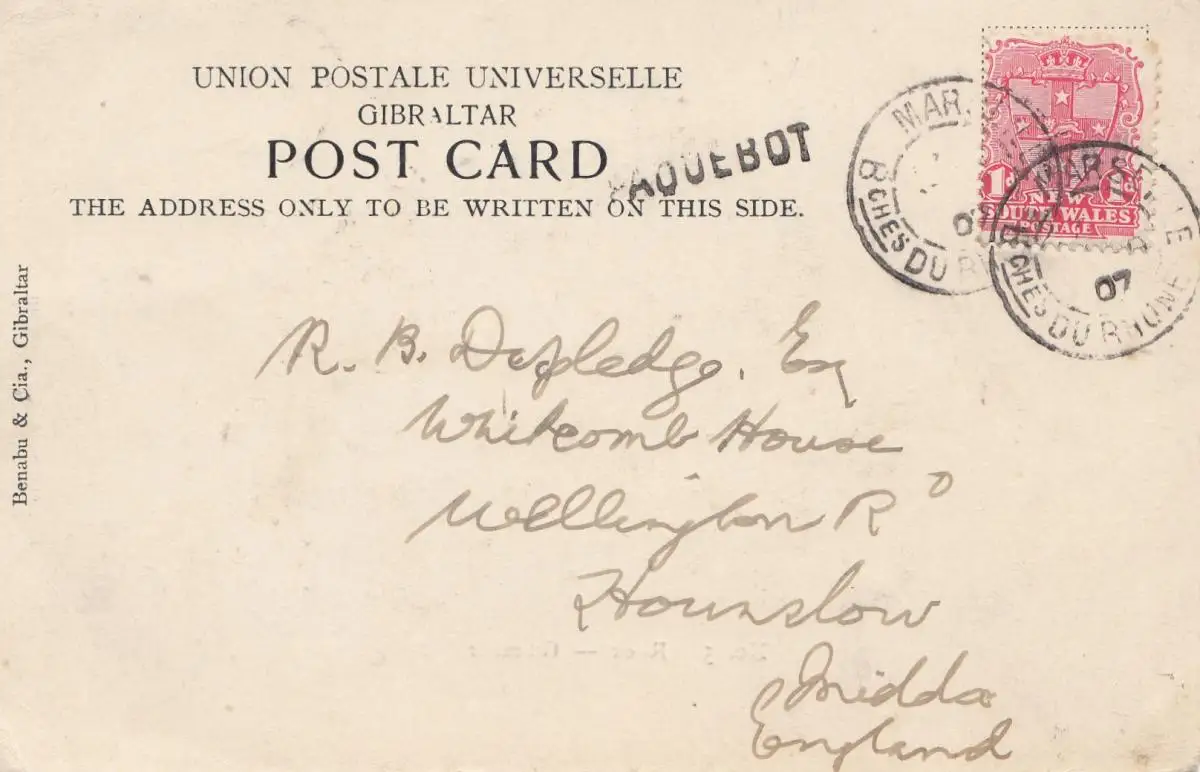 UNION POSTALE UNIVERSELLE
GIBRALTAR
POST CARD
THE ADDRESS ONLY TO BE WRITTEN ON THIS SIDE.
PAQUEBOT
MARSEILLE
07
BCHES DU RHONE
MARSEILLE
07
BCHES DU RHONE
1d 1d
NEW
SOUTH WALES
POSTAGE
Benabu & Cia., Gibraltar
R. B. Depledge. Esq
Whitcomb House
Wellington Rd
Hounslow
Middx
England